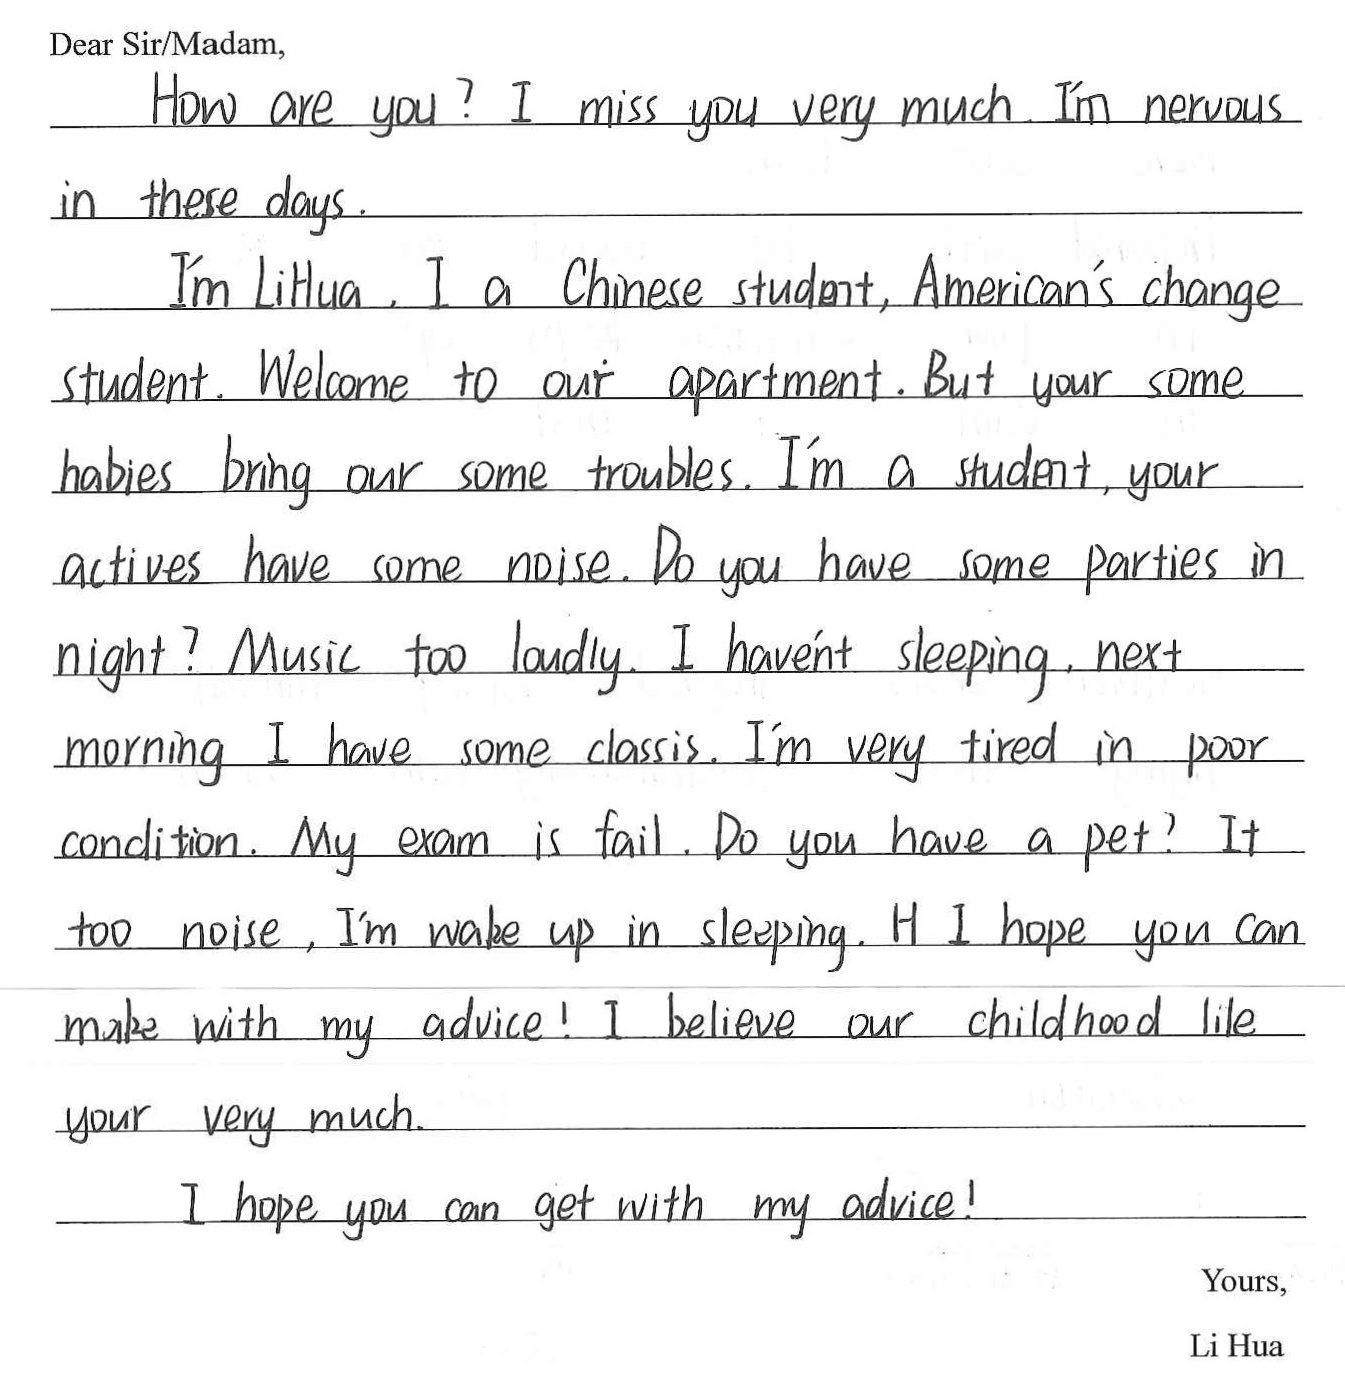 Dear Sir/Madam,
How are you? I miss you very much. I'm nervous
in these days.
I'm LiHua. I a Chinese student, American's change
student. Welcome to our apartment. But your some
habies bring our some troubles. I'm a student, your
actives have some noise. Do you have some parties in
night? Music too loudly. I haven't sleeping, next
morning I have some classis. I'm very tired in poor
condition. My exam is fail. Do you have a pet? It
too noise, I'm wake up in sleeping. H I hope you can
make with my advice! I believe our childhood lile
your very much.
I hope you can get with my advice!
Yours,
Li Hua